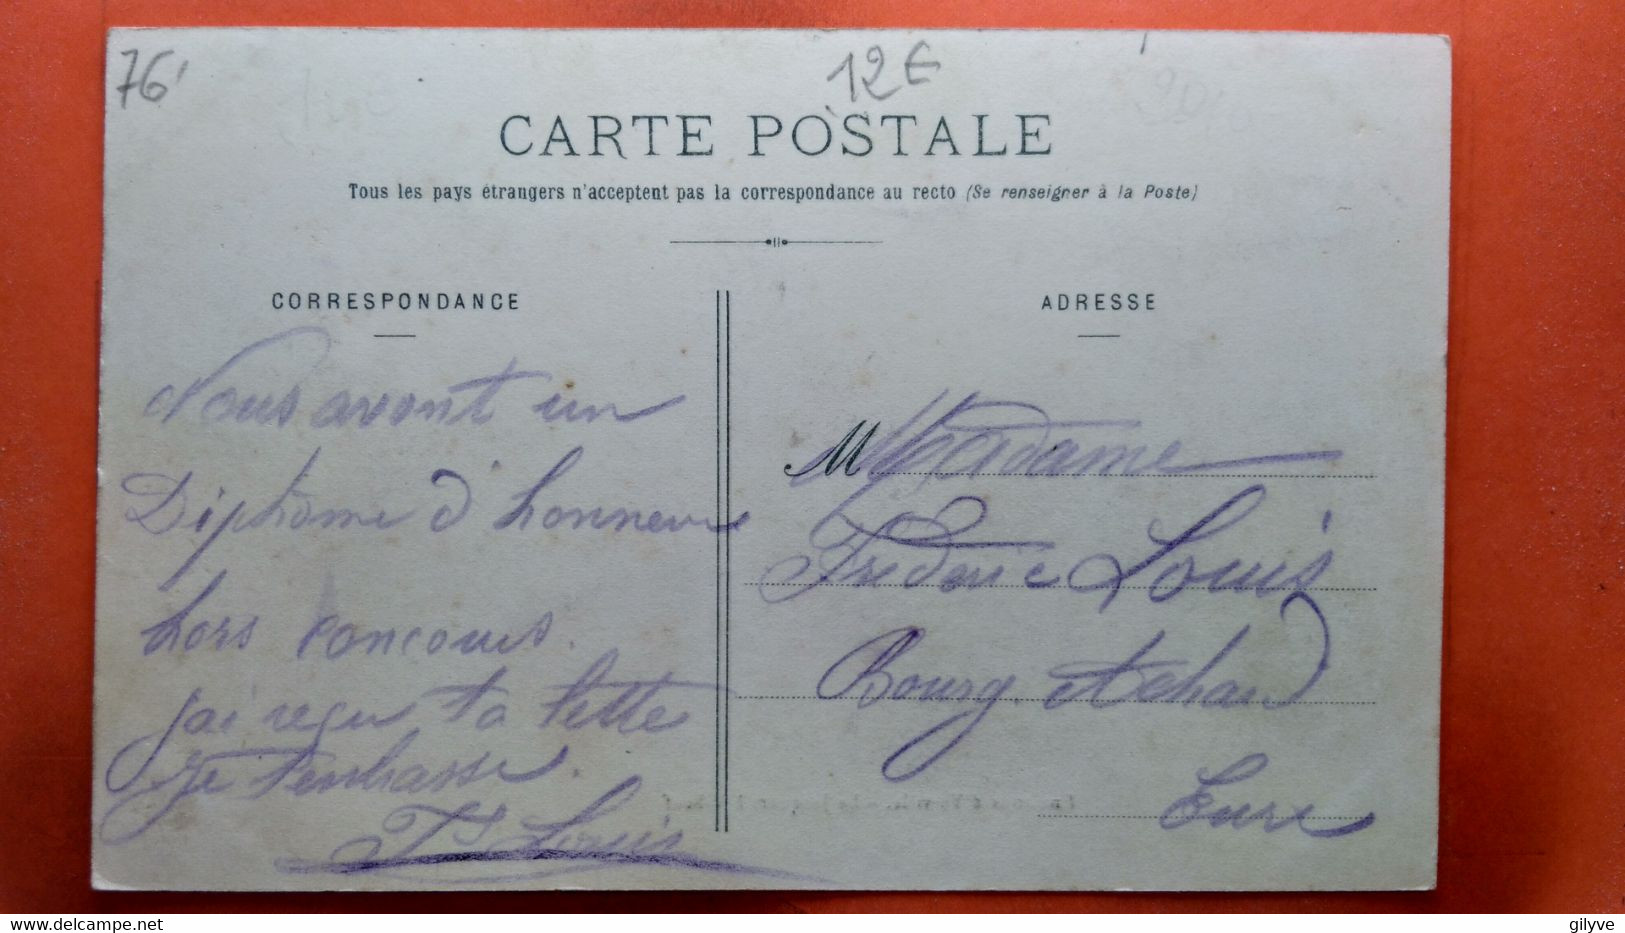 76'
12€
CARTE POSTALE
Tous les pays étrangers n'acceptent pas la correspondance au recto (Se renseigner à la Poste)
CORRESPONDANCE
ADRESSE
Nous avont un
Diphôme d'honneur
hors concours.
j'ai reçu ta lette
Je t'embrasse.
Louis
M Madame
Frederic Louis
Bourg Achard
Eure
gilyve